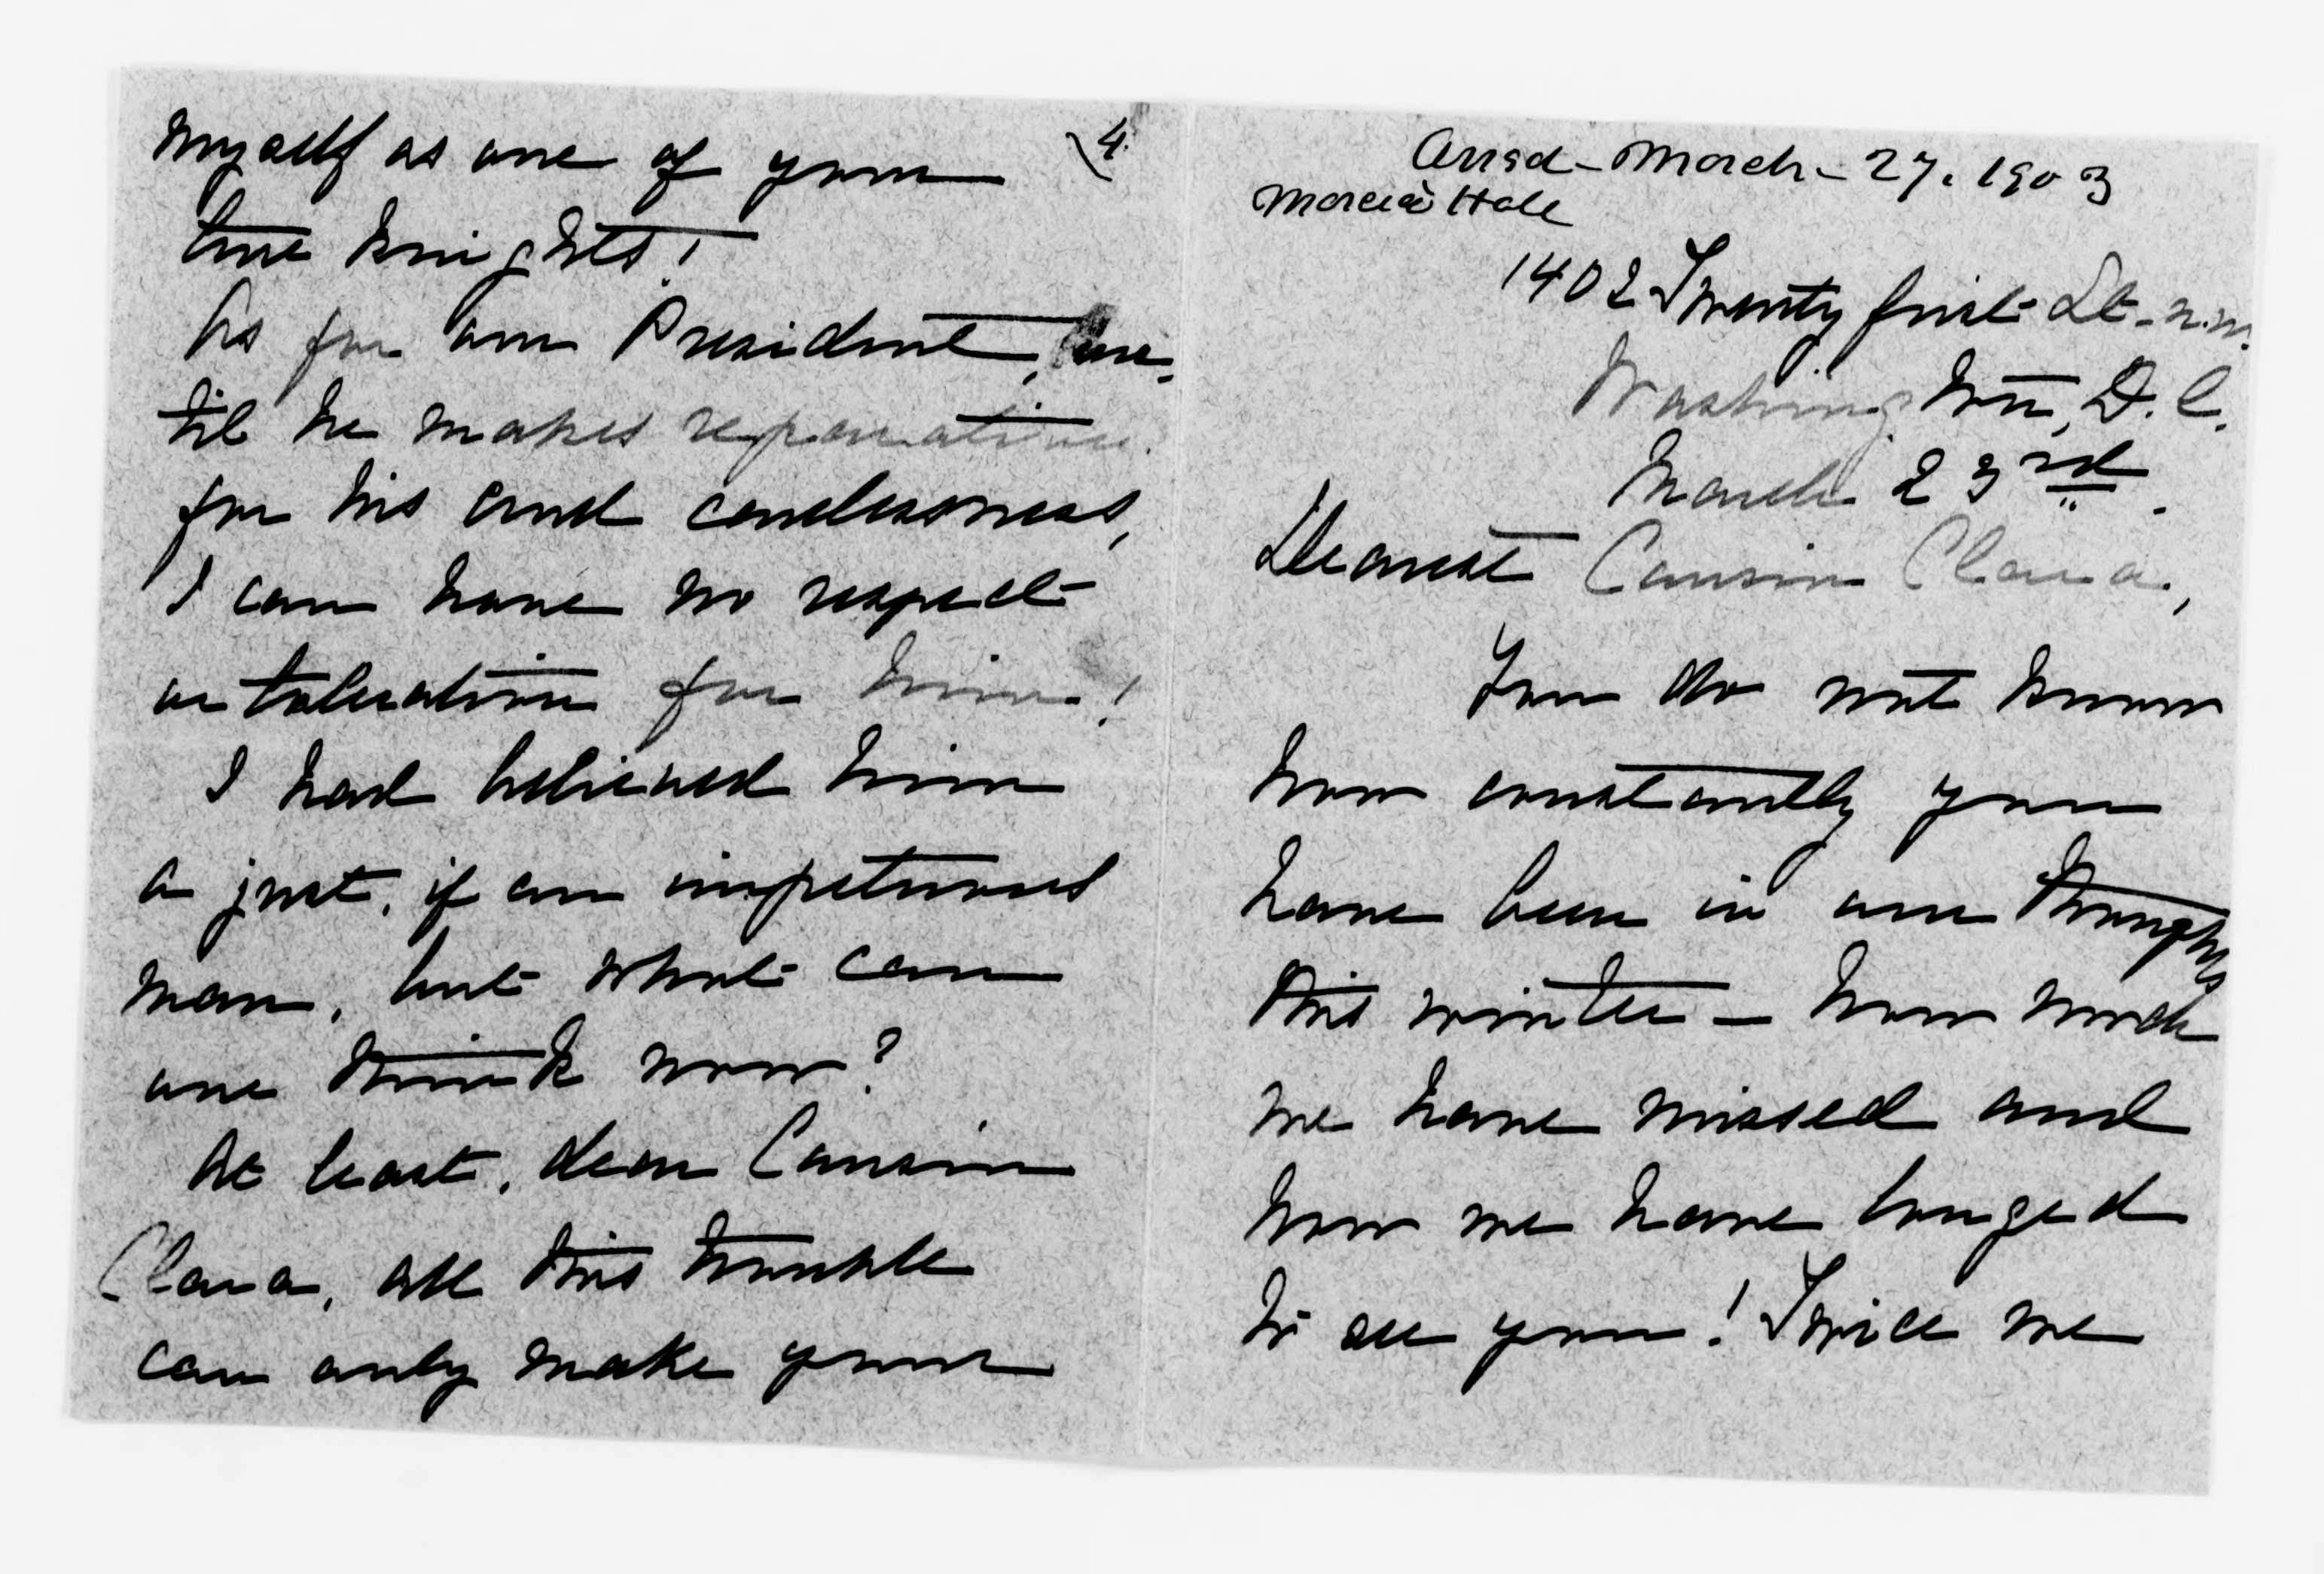 myself as one of your
4.
true knights!
As for our President, un-
til he makes reparation
for his cruel carelessness,
I can have no respect
or toleration for him!
I had believed him
a just, if an impetuous
man, but what can
one think now?
At least, dear Cousin
Clara, all this trouble
can only make your
Ansd - March - 27. 1903
Marcia Hall
1402 Twenty first St. N.W.
Washington, D.C.
March 23rd.
Dearest Cousin Clara,
You do not know
how constantly you
have been in our thoughts
this winter - how much
we have missed and
how we have longed
to see you! Twice we